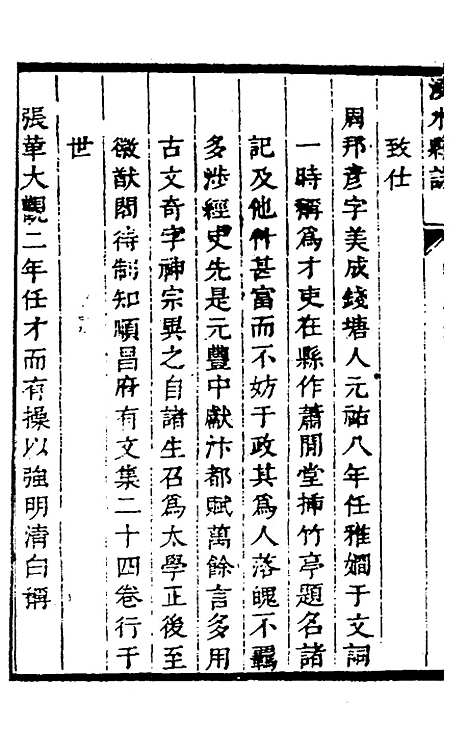 溧水縣志
致仕
周邦彥字美成錢塘人元祐八年任雅嫺于文詞
一時稱爲才吏在縣作蕭閒堂揷竹亭題名諸
記及他作甚富而不妨于政其爲人落魄不羈
多涉經史先是元豐中獻汴都賦萬餘言多用
古文奇字神宗異之自諸生召爲太學正後至
徽猷閣待制知順昌府有文集二十四卷行于
世
張華大觀二年任才而有操以強明清白稱